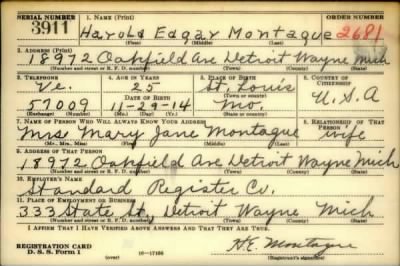 SERIAL NUMBER 1. NAME (Print) ORDER NUMBER
3911 Harold Edgar Montague 2681
(First) (Middle) (Last)
2. ADDRESS (Print)
18972 Oakfield Ave Detroit Wayne Mich
(Number and street or R. F. D. number) (Town) (County) (State)
3. TELEPHONE 4. AGE IN YEARS 5. PLACE OF BIRTH 6. COUNTRY OF CITIZENSHIP
Ve. 25 St. Louis
DATE OF BIRTH (Town or county) U.S.A
57009 11-29-14 Mo.
(Exchange) (Number) (Mo.) (Day) (Yr.) (State or country)
7. NAME OF PERSON WHO WILL ALWAYS KNOW YOUR ADDRESS 8. RELATIONSHIP OF THAT PERSON
Mrs Mary Jane Montague wife
(Mr., Mrs., Miss) (First) (Middle) (Last)
9. ADDRESS OF THAT PERSON
18972 Oakfield Ave Detroit Wayne Mich
(Number and street or R. F. D. number) (Town) (County) (State)
10. EMPLOYER'S NAME
Standard Register Co.
11. PLACE OF EMPLOYMENT OR BUSINESS
333 State St, Detroit Wayne Mich
(Number and street or R. F. D. number) (Town) (County) (State)
I AFFIRM THAT I HAVE VERIFIED ABOVE ANSWERS AND THAT THEY ARE TRUE.
REGISTRATION CARD H.E. Montague
D. S. S. Form 1 16-17105 (Registrant's signature)